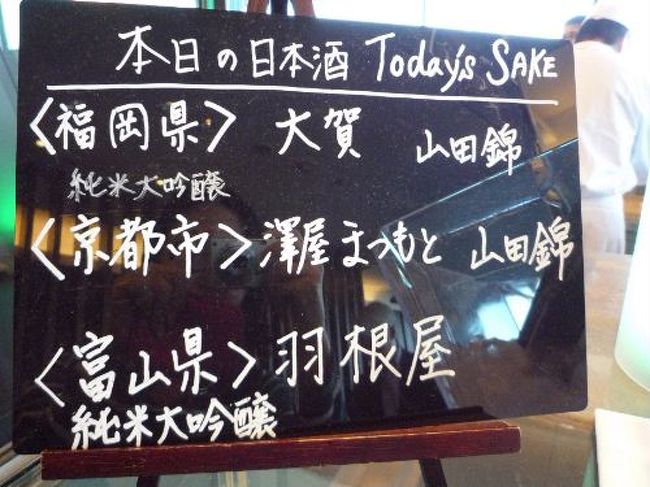 本日の日本酒 Today's SAKE
〈福岡県〉 大賀 山田錦
純米大吟醸
〈京都市〉澤屋まつもと 山田錦
〈富山県〉羽根屋
純米大吟醸